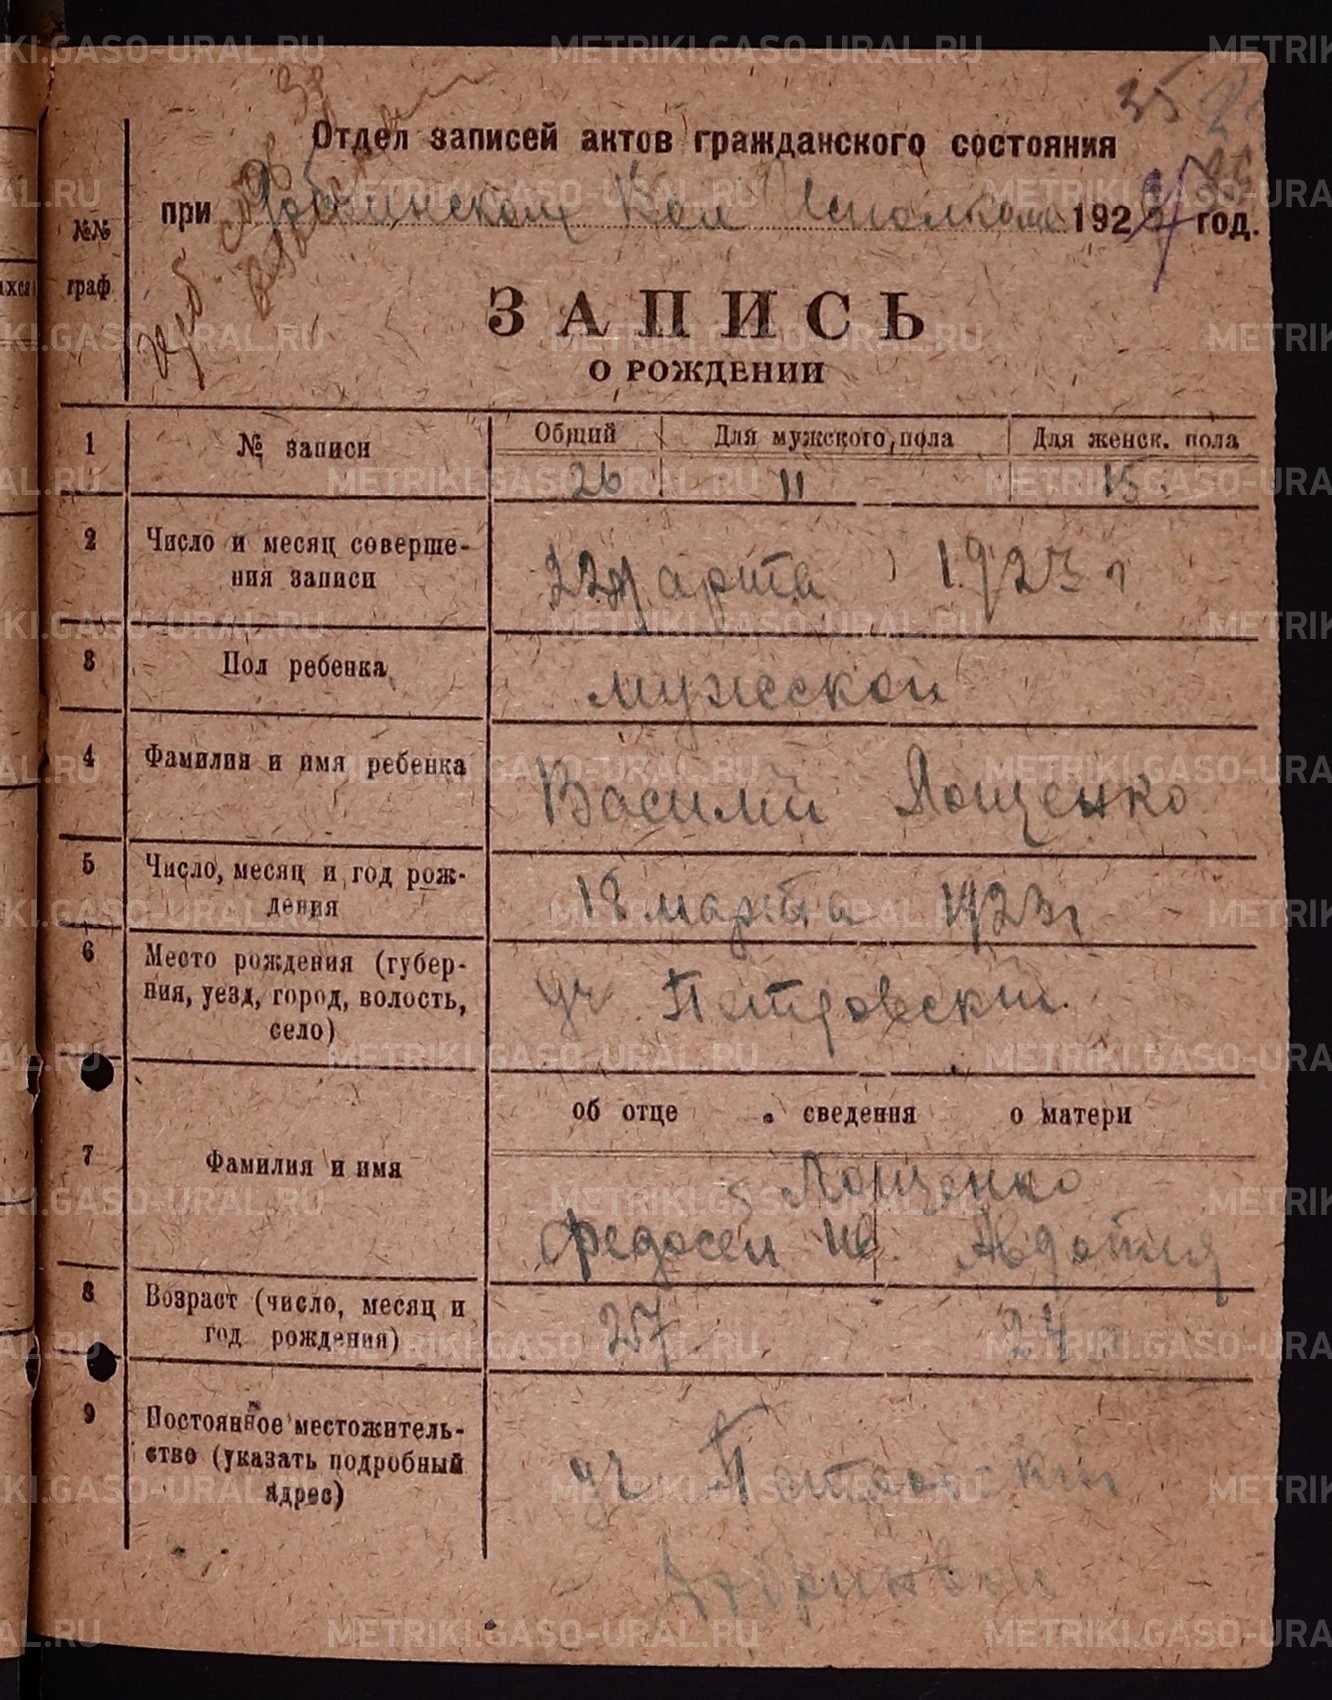 35
Отдел записей актов гражданского состояния
при Исполкоме 192 год.
№№
граф
ЗАПИСЬ
О РОЖДЕНИИ
1 № записи Общий Для мужского пола Для женск. пола
26 11 15
2 Число и месяц соверше-
ния записи
22 марта 1923 г
3 Пол ребенка
мужской
4 Фамилия и имя ребенка
Василий Лощенко
5 Число, месяц и год рож-
дения
18 марта 1923 г
6 Место рождения (губер-
ния, уезд, город, волость,
село)
уч. Петровский
об отце сведения о матери
7 Фамилия и имя
Лощенко
Федосей Ив. Авдотия
8 Возраст (число, месяц и
год рождения)
27 24
9 Постоянное местожитель-
ство (указать подробный
адрес)
уч Петровский
METRIKI.GASO-URAL.RU